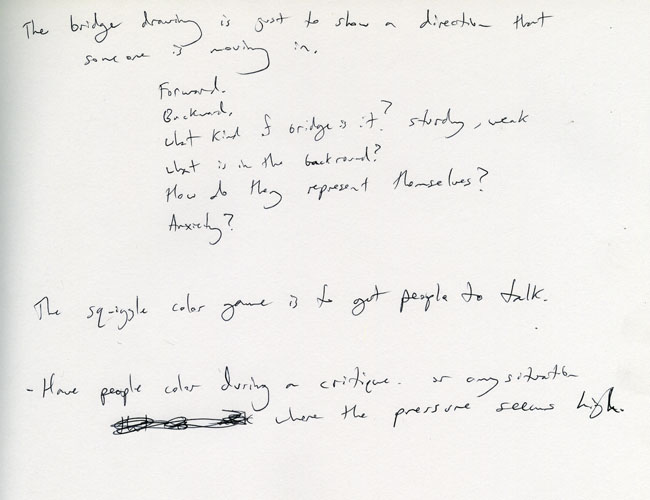 The bridge drawing is just to show a direction that
someone is moving in.
Forward.
Backward.
what kind of bridge is it? sturdy, weak
what is in the backround?
How do they represent themselves?
Anxiety?
The squiggle color game is to get people to talk.
- Have people color during a critique. or any situation
where the pressure seems high.